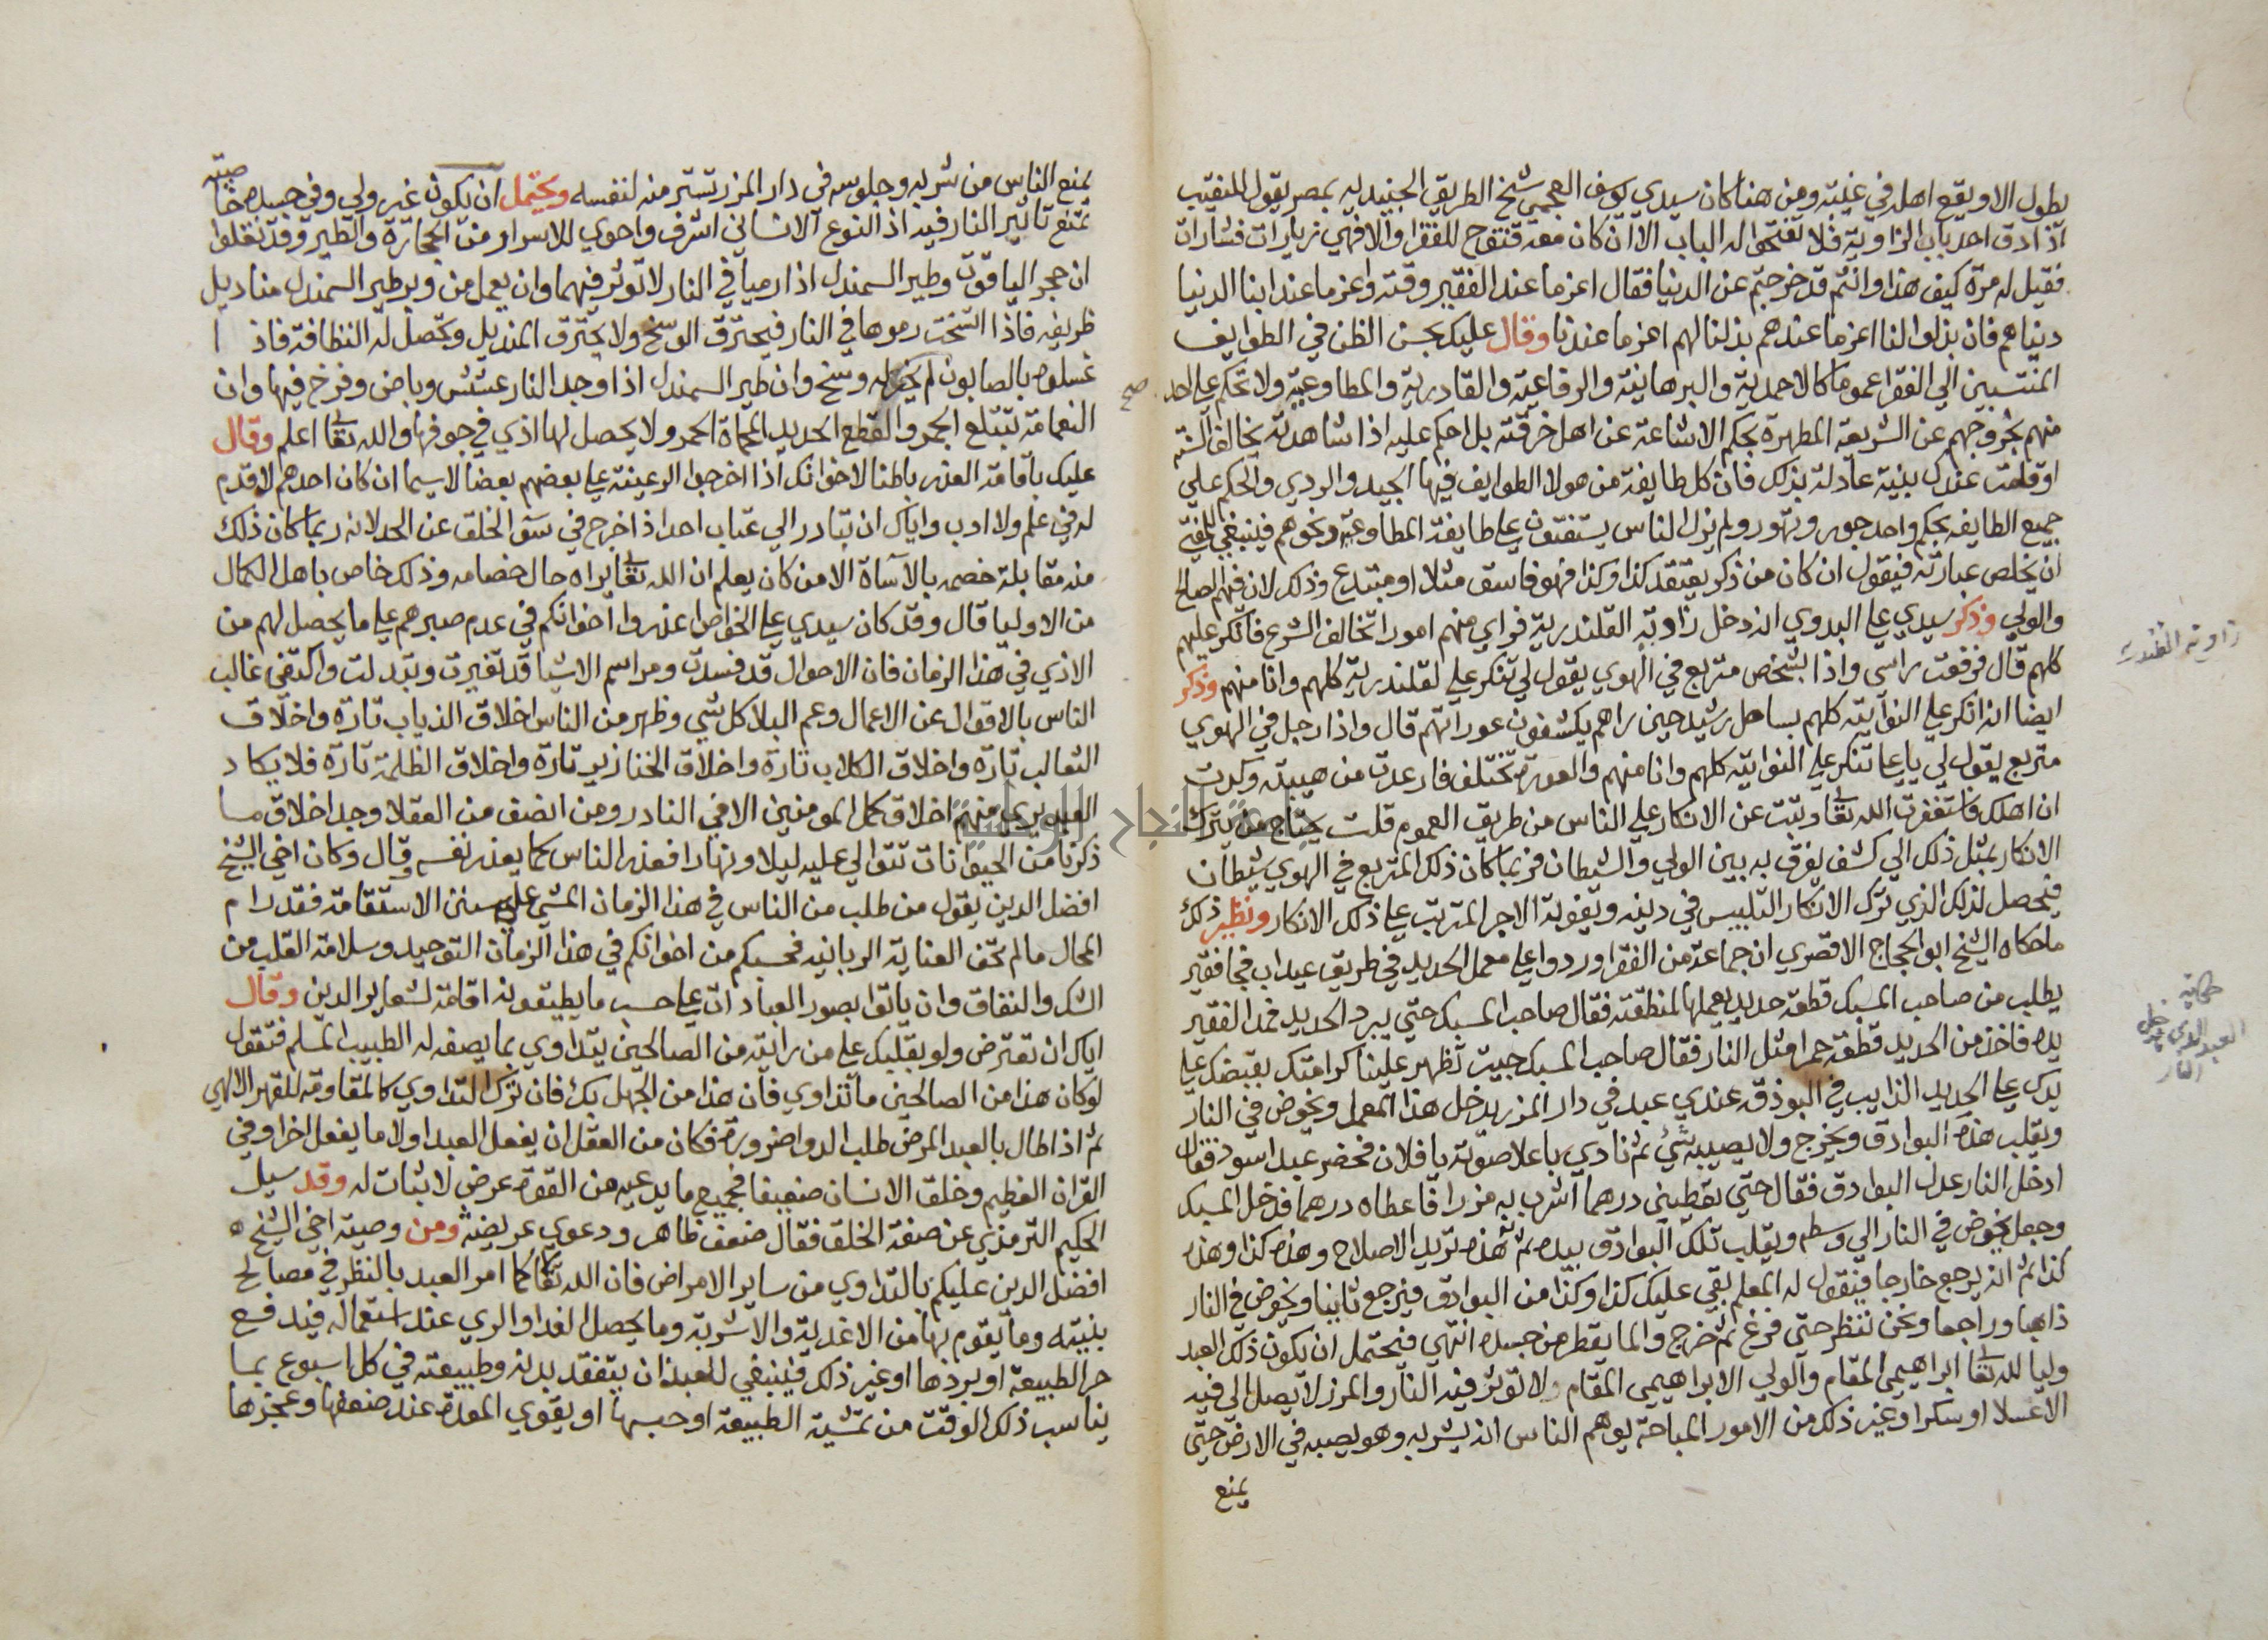 يطول الا ويقع اهله في غيبته ومن هنا كان سيدي يوسف العجمي شيخ الطريق الجنيديه بمصر يقول للنقيب
اذا دق احد باب الزاوية فلا تفتحوا له الباب الا ان كان معه فتوح للفقرا والا فهي زيارات فشارات
فقيل له مرة كيف هذا وانتم قد خرجتم عن الدنيا فقال اعز ما عند الفقير وقته واعز ما عند ابنا الدنيا
دنياهم فان بذلوا لنا اعز ما عندهم بذلنا لهم اعز ما عندنا وقال عليك بحسن الظن في الطوايف
المنتسبين الي الفقرا عموما كالاحمدية والبرهانية والرفاعية والقادرية والمطاوعية ولا تحكم علي احد
صح
منهم بخروجهم عن الشريعة المطهرة بحكم الاشاعة عن اهل خرقته بل احكم عليه اذا شاهدته يخالف السنة
او قامت عندك بينة عادلة بذلك فان كل طايفة من هولا الطوايف فيها الجيد والردي والحكم علي
جميع الطايفه بحكم واحد جور وتهور ولم يزل الناس يستفتون علي طايفة المطاوعة ونحوهم فينبغي للمفتي
ان يخلص عبارته فيقول ان كان من ذكر يعتقد كذا وكذا فهو فاسق مثلا او مبتدع وذلك لان فيهم الصالح
والولي وذكر سيدي علي البدوي انه دخل زاوية القلندرية فراي منهم امورا تخالف الشرع فانكر عليهم
زاوية القلندرية
كلهم قال فرفعت راسي واذا بشخص متربع في الهوي يقول لي تنكر علي القلندرية كلهم وانا منهم وذكر
ايضا انه انكر علي النواتية كلهم بساحل رشيد حين راهم يكشفون عوراتهم قال واذا رجل في الهوي
متربع يقول لي يا علي تنكر علي النواتية كلهم وانا منهم والعورة تختلف فارعدت من هيبته وكدت
ان اهلك فاستغفرت الله تعالى وتبت عن الانكار علي الناس من طريق العموم قلت يحتاج من يترك
الانكار بمثل ذلك الي كشف يفرق به بين الولي والشيطان فربما كان ذلك المتربع في الهوي شيطان
فيحصل لذلك الذي ترك الانكار التلبيس في دينه ويفوته الاجر المترتب علي ذلك الانكار ونظير ذلك
ما حكاه الشيخ ابو الحجاج الاقصري ان جماعة من الفقرا وردوا علي معمل الحديد في طريق عيداب فجا فقير
يطلب من صاحب المسبك قطعة حديد يعملها لمنطقته فقال صاحب المسبك حتي يبرد الحديد فمد الفقير
حكاية
العبد الذي يدخل
النار
يده فاخذ من الحديد قطعة حمرا مثل النار فقال صاحب المسبك جيت تظهر علينا كرامتك بقبضك علي
يدك علي الحديد الذايب في البوذقة عندي عبد في دار المزر يدخل هذا المعمل ويخوض في النار
ويقلب هذه البوادق ويخرج ولا يصيبه شئ ثم نادي باعلا صوته يا فلان فحضر عبد اسود فقال
ادخل النار عدل البوادق فقال حتي تعطيني درهما اشرب به مزرا فاعطاه درهما فدخل المسبك
وجعل يخوض في النار الي وسطه ويقلب تلك البوادق بيده ثم هذه تريد الاصلاح وهذه كذا وهذه
كذا ثم انه يرجع خارجا فيقول له المعلم بقي عليك كذا وكذا من البوادق فيرجع ثانيا ويخوض في النار
ذاهبا وراجعا ونحن ننظر حتي فرغ ثم خرج والما يقطر من جسده انتهي فيحتمل ان يكون ذلك العبد
وليا لله تعالى ابراهيمي المقام والولي الابراهيمي المقام ولا تؤثر فيه النار والمزر لا يصل الي فيه
الا عسلا او سكرا او غير ذلك من الامور المباحة يوهم الناس انه يشربه وهو يصبه في الارض حتي
يمنع
يمنع الناس من شربه وجلوسه في دار المزر تستر منه لنفسه ويحتمل ان يكون غير ولي وفي جسده خاصية
تمنع تاثير النار فيه اذ النوع الانساني اشرف واحوي للاسرار من الحجارة والطير وقد نقلوا
ان حجر الياقوت وطير السمندل اذا رميا في النار لا توثر فيهما وان يعمل من وبر طير السمندل مناديل
ظريفه فاذا اتسخت رموها في النار فيحترق الوسخ ولا يحترق المنديل وتحصل له النظافة فاذا
غسلوه بالصابون لم يخرج له وسخ وان طير السمندل اذا وجد النار عشش وباض وفرخ فيها وان
النعامة تبتلع الجمر والقطع الحديد المحماة الحمر ولا يحصل لها اذي في جوفها والله تعالى اعلم وقال
عليك باقامة العذر باطنا لاخوانك اذا اخرجوا الرعينة علي بعضهم بعضا لا سيما ان كان احدهم لا قدم
له في علم ولا ادب واياك ان تبادر الي عتاب احد اذ اخرج في سؤ الخلق عن الحد لانه ربما كان ذلك
منه مقابلة خصمه بالاساة الا من كان يعلم ان الله تعالى يراه حال خصامه وذلك خاص باهل الكمال
من الاوليا قال وقد كان سيدي علي الخواص اعذروا اخوانكم في عدم صبرهم علي ما يحصل لهم من
الاذي في هذا الزمان فان الاحوال قد فسدت ومراسم الاشيا قد تغيرت وتبدلت واكتفي غالب
الناس بالاقوال عن الاعمال وعم البلا كل شي وظهر من الناس اخلاق الذياب تارة واخلاق
الثعالب تارة واخلاق الكلاب تارة واخلاق الخنازير تارة واخلاق الظلمة تارة فلا يكاد
العبد يري منهم اخلاق كمل المومنين الا في النادر ومن انصف من العقلا وجد اخلاق ما
ذكرنا من الحيوانات تتوالي عليه ليلا ونهارا فعذر الناس كما يعذر نفسه وقال وكان اخي الشيخ
افضل الدين يقول من طلب من الناس في هذا الزمان المشي علي سنن الاستقامة فقد رام
المحال ما لم تحف العناية الربانيه فحسبكم من اخوانكم في هذا الزمان التوحيد وسلامة القلب من
الشك والنفاق وان ياتوا بصور العبادات علي حسب ما يطيقونه اقامة لشعاير الدين وقال
اياك ان تعترض ولو بقلبك علي من رايته من الصالحين يتداوي بما يصفه له الطبيب المسلم فتقول
لو كان هذا من الصالحين ما تداوي فان هذا من الجهل بك فان ترك التداوي كالمقاومة للقهر الالهي
ثم اذا طال بالعبد المرض طلب الدوا ضرورة فكان من العقل ان يفعل العبد اولا ما يفعل اخرا وفي
القران العظيم وخلق الانسان ضعيفا فجميع ما يدعيه من القوة عرض لا ثبات له وقد سيل
الحكيم الترمذي عن صفة الخلق فقال ضعف ظاهر ودعوي عريضة ومن وصية اخي الشيخ
افضل الدين عليكم بالتداوي من ساير الامراض فان الله تعالى كما امر العبد بالنظر في مصالح
بنيته وما يقوم بها من الاغدية والاشربة وما يحصل الغدا والري عند استعماله فيدفع
حر الطبيعة او بردها او غير ذلك فينبغي للعبد ان يتفقد بدنه وطبيعته في كل اسبوع بما
يناسب ذلك الوقت من تمشية الطبيعة او حبسها او يقوي المعدة عند ضعفها وعجزها
جامعة النجاح الوطنية